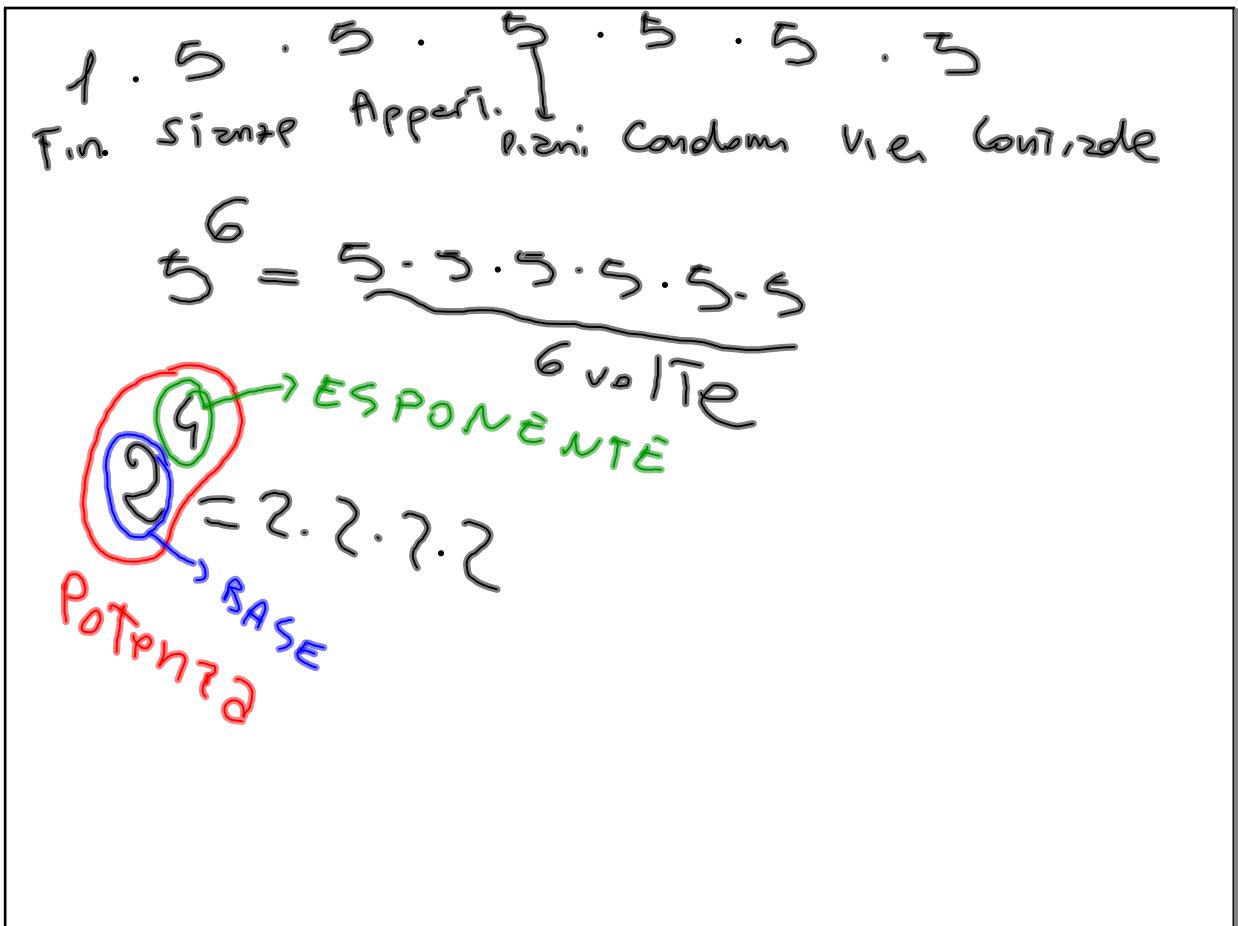 1 . 5 . 5 . 5 . 5 . 5 . 5
Fin. Stanze Appart. Piani Condom Vie Contrade
5^6 = 5 . 5 . 5 . 5 . 5 . 5
6 volte
2^4 = 2 . 2 . 2 . 2
ESPONENTE
BASE
Potenza